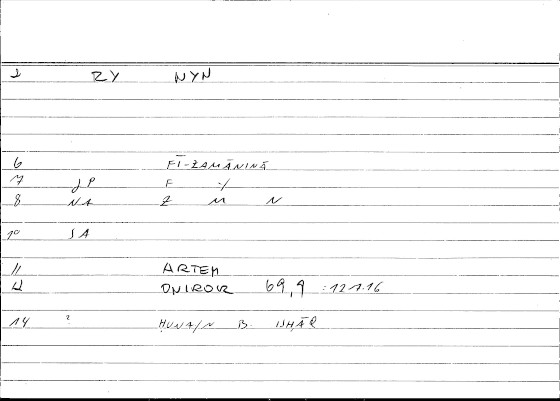 2 RY NYN
6 FĪ-ZAMĀNINĀ
7 JP F ·/·
8 NA Z M N
10 SA
11 ARTEM
12 ONIROCR 69,9 :121.16
14 ? ḤUNAIN B. ISḤĀQ